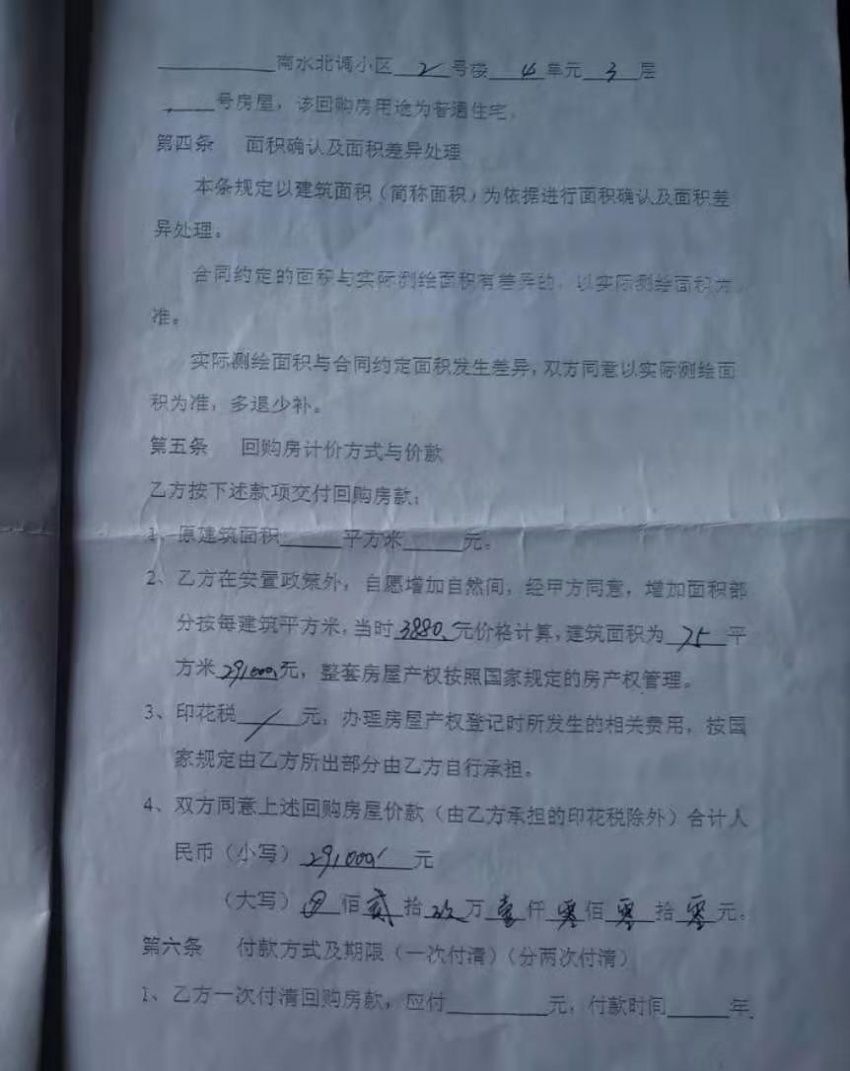 ________南水北调小区 2 号楼 4 单元 3 层
____号房屋，该回购房用途为普通住宅。
第四条 面积确认及面积差异处理
本条规定以建筑面积（简称面积）为依据进行面积确认及面积差
异处理。
合同约定的面积与实际测绘面积有差异的，以实际测绘面积为
准。
实际测绘面积与合同约定面积发生差异，双方同意以实际测绘面
积为准，多退少补。
第五条 回购房计价方式与价款
乙方按下述款项交付回购房款：
1、原建筑面积____平方米____元。
2、乙方在安置政策外，自愿增加自然间，经甲方同意，增加面积部
分按每建筑平方米，当时 3880 元价格计算，建筑面积为 75 平
方米 291000 元，整套房屋产权按照国家规定的房产权管理。
3、印花税 / 元，办理房屋产权登记时所发生的相关费用，按国
家规定由乙方所出部分由乙方自行承担。
4、双方同意上述回购房屋价款（由乙方承担的印花税除外）合计人
民币（小写）291000 元
（大写） 佰贰拾玖万壹仟零佰零拾零元。
第六条 付款方式及期限（一次付清）（分两次付清）
1、乙方一次付清回购房款，应付______元，付款时间____年